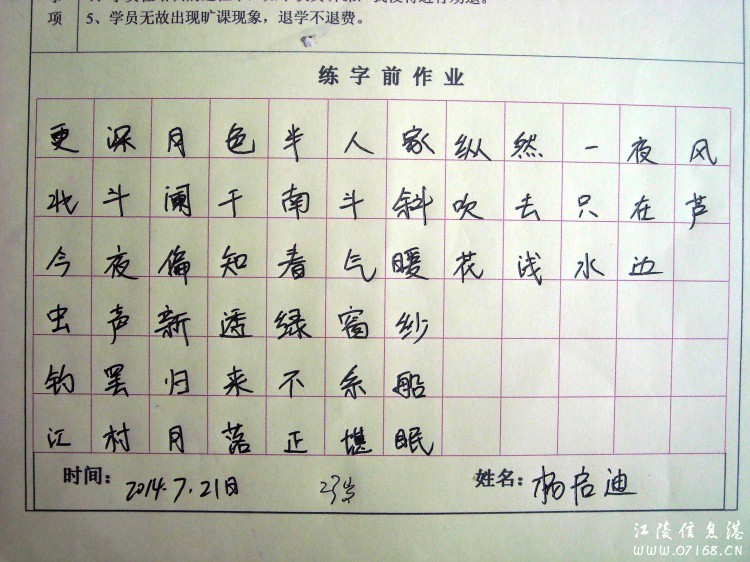 项 5、学员无故出现旷课现象，退学不退费。
练字前作业
更深月色半人家纵然一夜风
北斗阑干南斗斜吹去只在芦
今夜偏知春气暖花浅水边
虫声新透绿窗纱
钓罢归来不系船
江村月落正堪眠
时间：2014.7.21日 23岁 姓名：杨启迪
江陵信息港
WWW.07168.CN